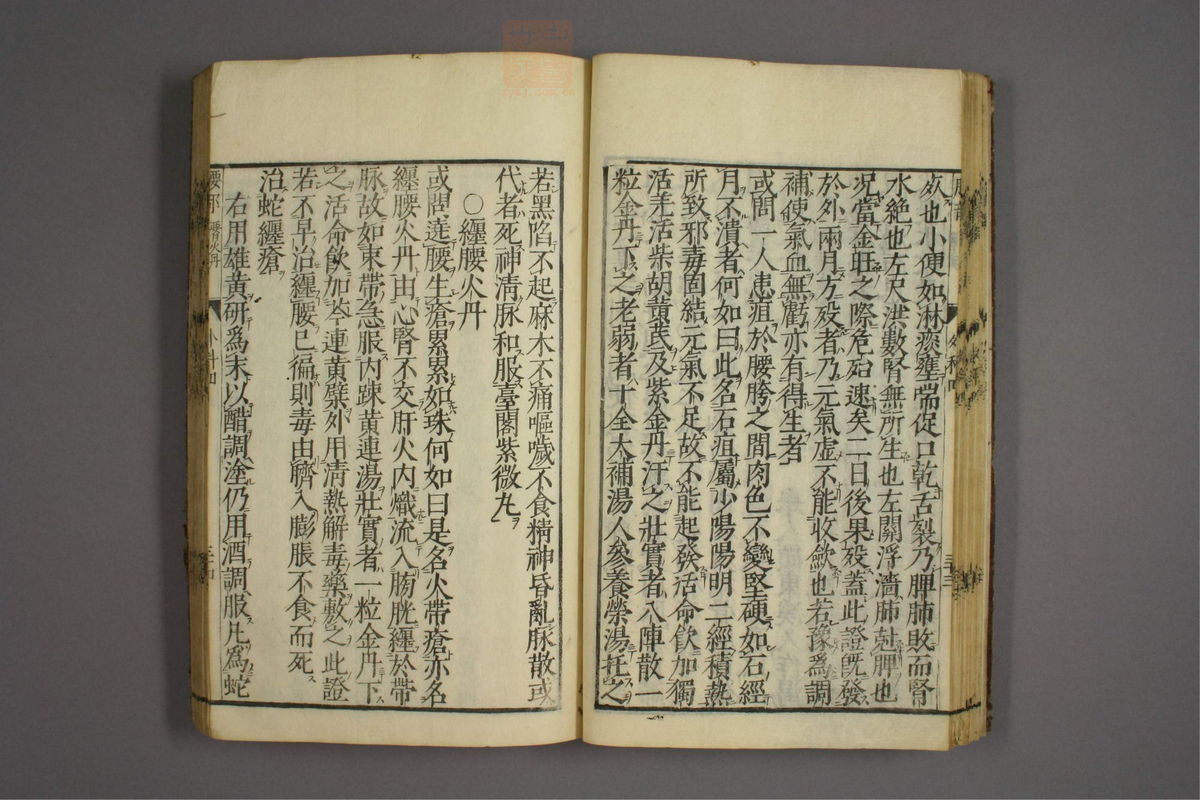 灸也小便如淋痰壅喘促口乾舌裂乃脾肺敗而腎
水絶也左尺洪數腎無所生也左關浮濇肺尅脾也
况當金旺之際危殆速矣二日後果歿蓋此證旣發
於外兩月方歿者乃元氣虛不能收歛也若豫爲調
補使氣血無虧亦有得生者
或問一人患疽於腰胯之間肉色不變堅硬如石經
月不潰者何如曰此名石疽屬少陽陽明二經積熱
所致邪毒固結元氣不足故不能起發活命飮加獨
活羌活柴胡黃芪及紫金丹汗之壯實者八陣散一
粒金丹下之老弱者十全大補湯人參養榮湯托之
若黑陷不起麻木不痛嘔噦不食精神昏亂脉散或
代者死神清脉和服臺閣紫微丸
○纏腰火丹
或問遶腰生瘡累累如珠何如曰是名火帶瘡亦名
纏腰火丹由心腎不交肝火內熾流入膀胱纏於帶
脉故如束帶急服內踈黃連湯壯實者一粒金丹下
之活命飮加芩連黃檗外用清熱解毒藥敷之此證
若不早治纏腰已徧則毒由臍入膨脹不食而死
治蛇纏瘡
右用雄黃研爲末以醋調塗仍用酒調服凡爲蛇